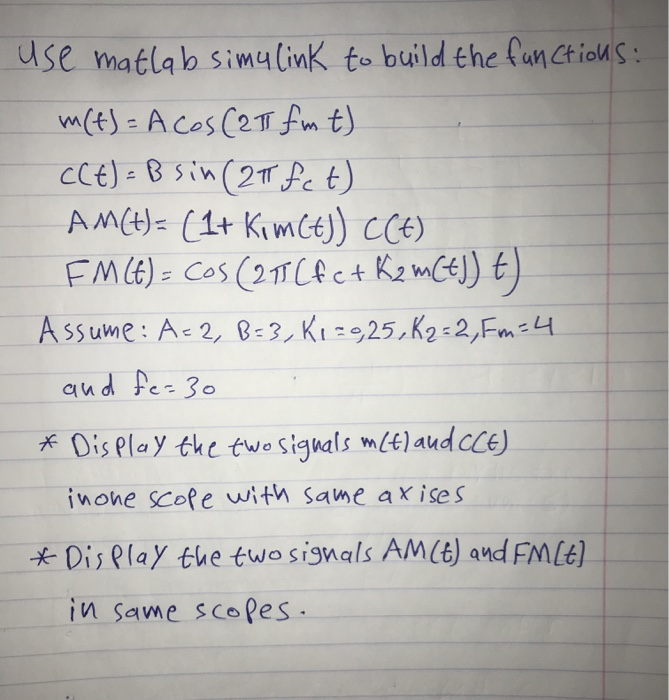 use matlab simulink to build the functions:
m(t) = A cos(2π fm t)
c(t) = B sin(2π fc t)
AM(t) = (1 + K1 m(t)) c(t)
FM(t) = cos(2π(fc + K2 m(t)) t)
Assume: A=2, B=3, K1=0,25, K2=2, Fm=4
and fc=30
* Display the two signals m(t) and c(t)
in one scope with same axises
* Display the two signals AM(t) and FM(t]
in same scopes.